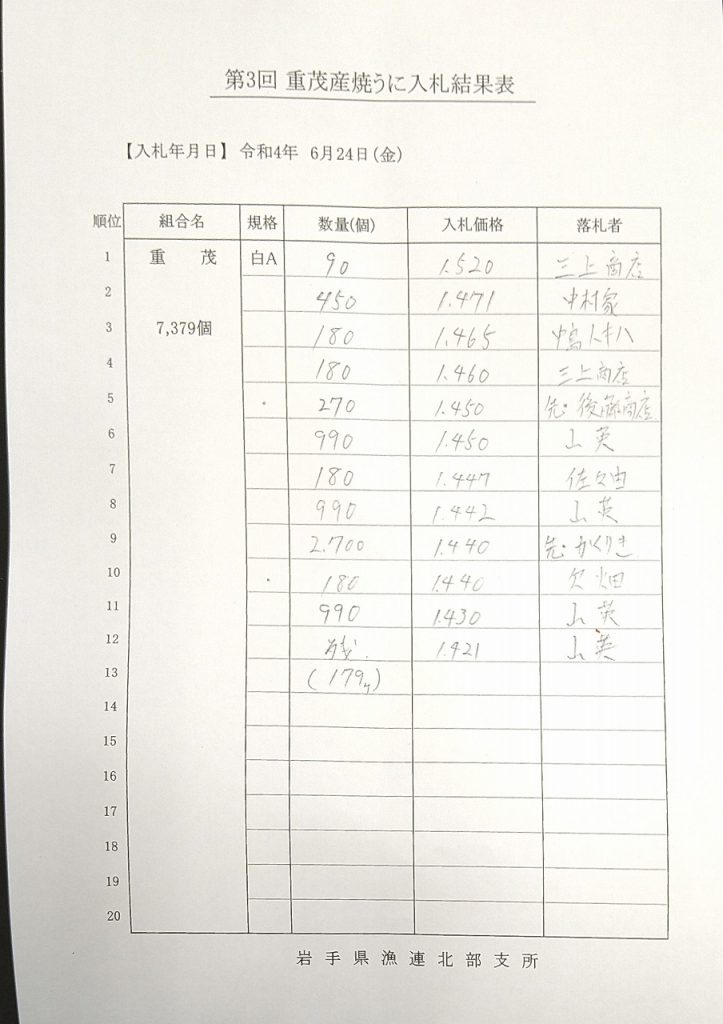 第3回 重茂産焼うに入札結果表
【入札年月日】 令和4年 6月24日(金)
順位 組合名 規格 数量(個) 入札価格 落札者
1 重 茂 白A 90 1.520 三上商店
2 450 1.471 中村家
3 7,379個 180 1.465
4 180 1.460 三上商店
5 270 1.450 先・後藤商店
6 990 1.450 山英
7 180 1.447 佐々由
8 990 1.442 山英
9 2.700 1.440 先・かくりき
10 180 1.440 欠畑
11 990 1.430 山英
12 残. 1.421 山英
13 (179ヶ)
14
15
16
17
18
19
20
岩手県漁連北部支所